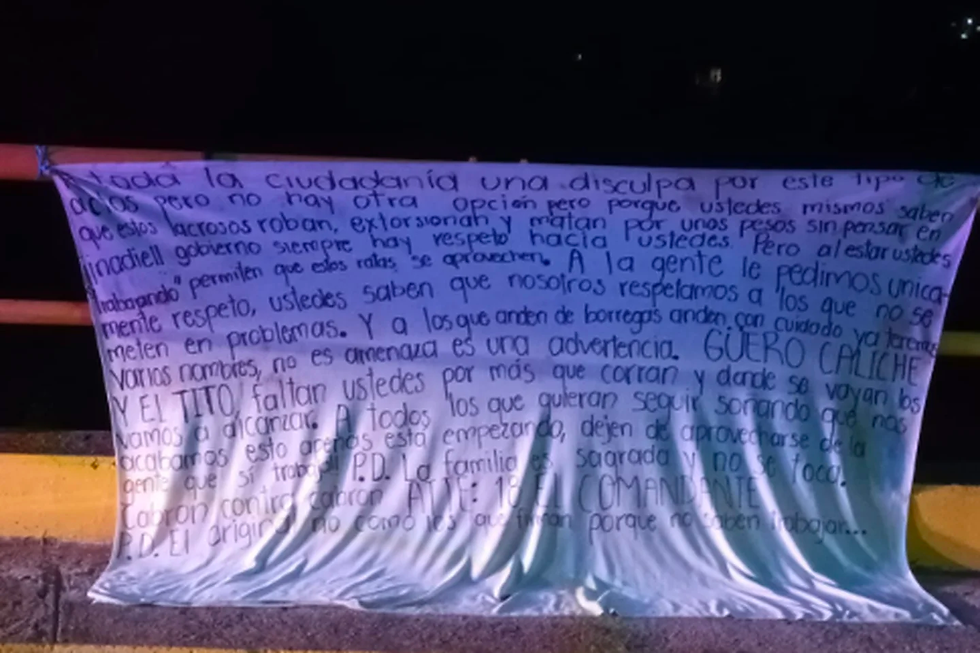 A toda la ciudadanía una disculpa por este tipo de
actos pero no hay otra opción pero porque ustedes mismos saben
que estos lacrosos roban, extorsionan y matan por unos pesos sin pensar en
nadie!! gobierno siempre hay respeto hacia ustedes. Pero al estar ustedes
"trabajando" permiten que estos ratas se aprovechen. A la gente le pedimos unica-
mente respeto, ustedes saben que nosotros respetamos a los que no se
meten en problemas. Y a los que anden de borregas anden con cuidado ya tenemos
varios nombres, no es amenaza es una advertencia. GÜERO CALICHE
Y EL TITO, faltan ustedes por más que corran y donde se vayan los
vamos a alcanzar. A todos los que quieran seguir soñando que nos
acabamos esto apenas está empezando, dejen de aprovecharse de la
gente que si trabaja P.D. La familia es sagrada y no se toca.
Cabron contra cabron ATTE: 18 EL COMANDANTE
P.D. El original no como los que firman porque no saben trabajar...